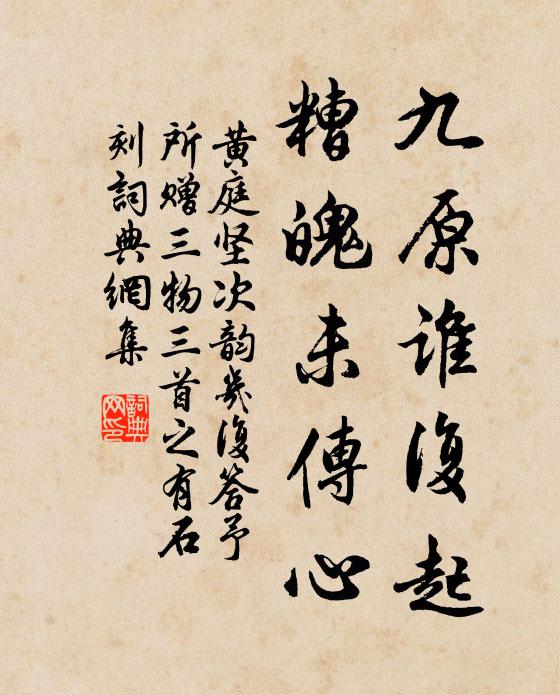 九原誰復起
糟魄未傳心
黄庭坚次韵㡬復答予
所赠三物三首之有石
刻詞典網集
詞典網印